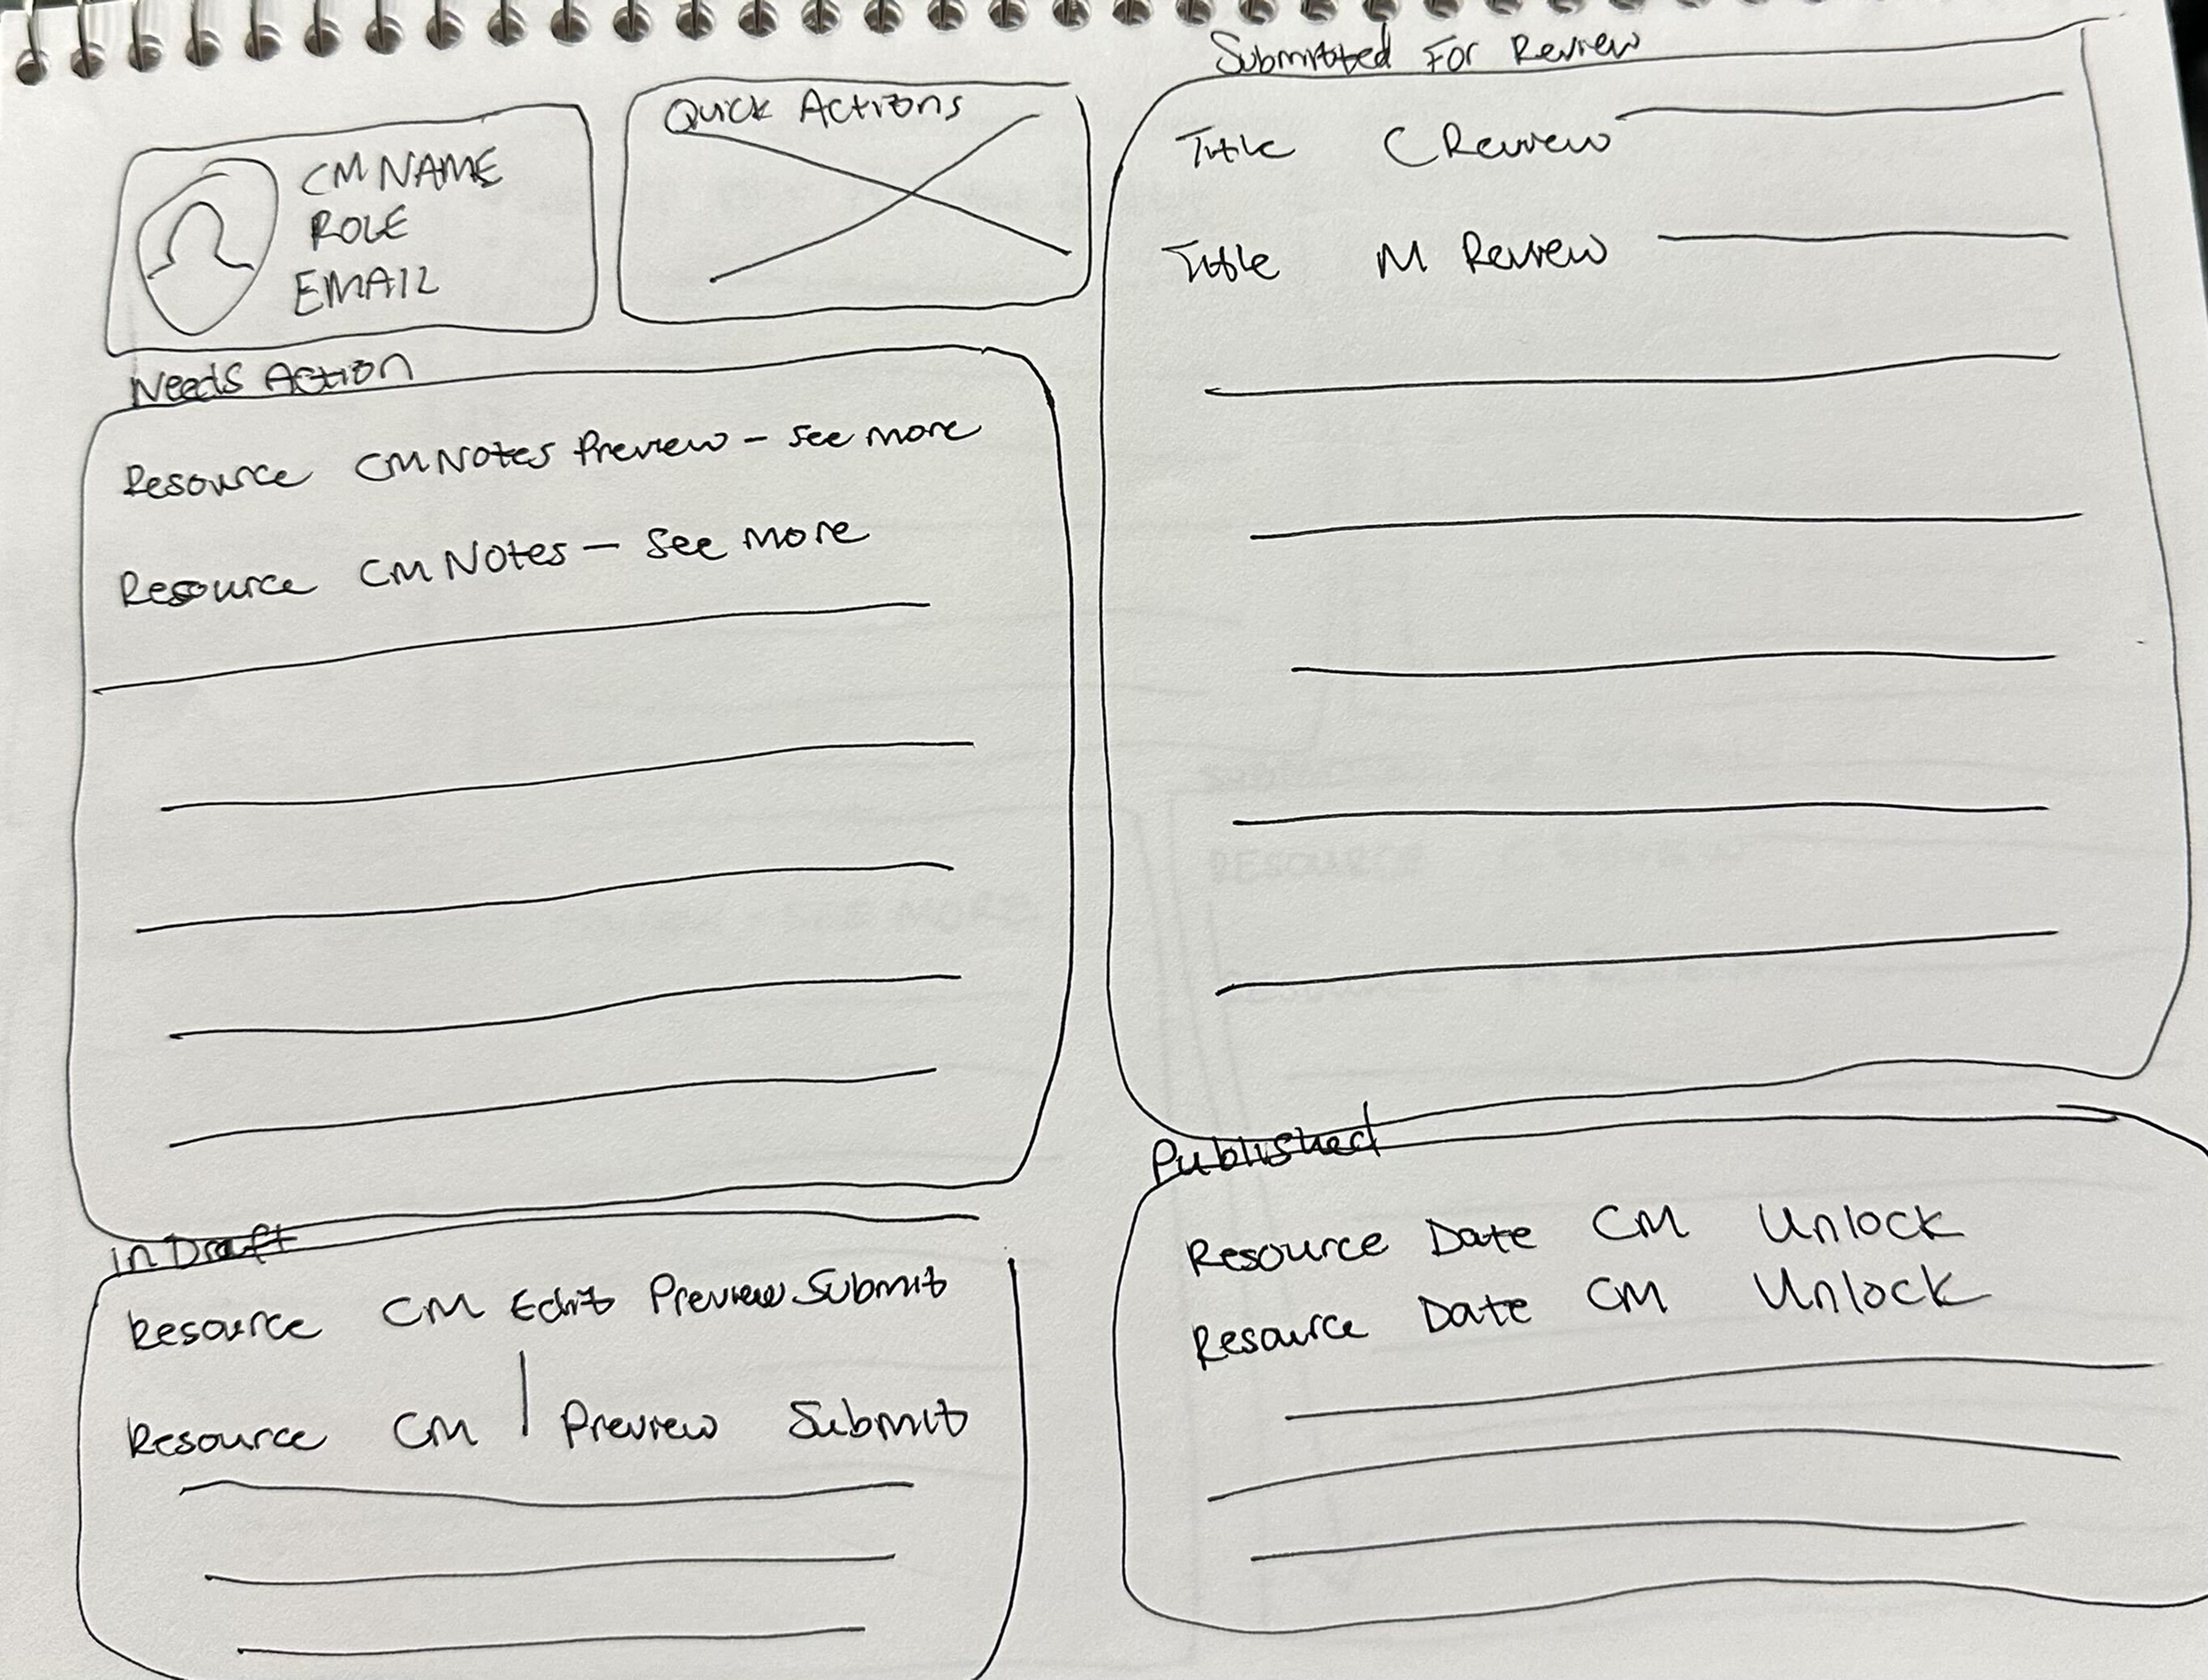 CM NAME
ROLE
EMAIL
Quick Actions
Needs Action
Resource CM Notes Preview - see more
Resource CM Notes - see more
in Draft
Resource CM Edit Preview Submit
Resource CM | Preview Submit
Submitted For Review
Title C Review
Title M Review
Published
Resource Date CM Unlock
Resource Date CM Unlock